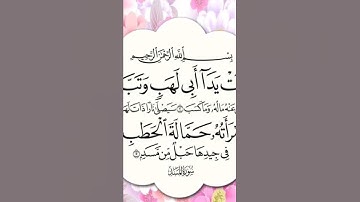 بِسْمِ ٱللَّهِ ٱلرَّحْمَٰنِ ٱلرَّحِيمِ
تْ يَدَآ أَبِي لَهَبٍ وَتَبَّ
عَنْهُ مَالُهُۥ وَمَا كَسَبَ ۝ سَيَصْلَىٰ نَارًا ذَاتَ لَهَ
مْرَأَتُهُۥ حَمَّالَةَ ٱلْحَطَبِ
فِي جِيدِهَا حَبْلٌ مِّن مَّسَدٍۭ ۝
سُورَةُ الْمَسَدِ